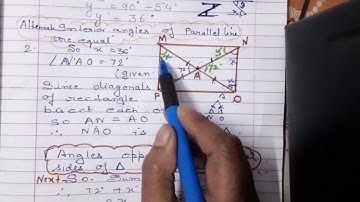 y° = 90° - 54°
y° = 36°
Alternate Interior angles of Parallel line
are equal
2. So x = 36°
∠NAO = 72°
(given
Since diagonals
of rectangle
bisect each o
So AN = AO
∴ NAO is
Angles opp
sides of Δ
Next So Sum
∴ 72° + x°
M
N
y°
x
x
72°
A
P
O